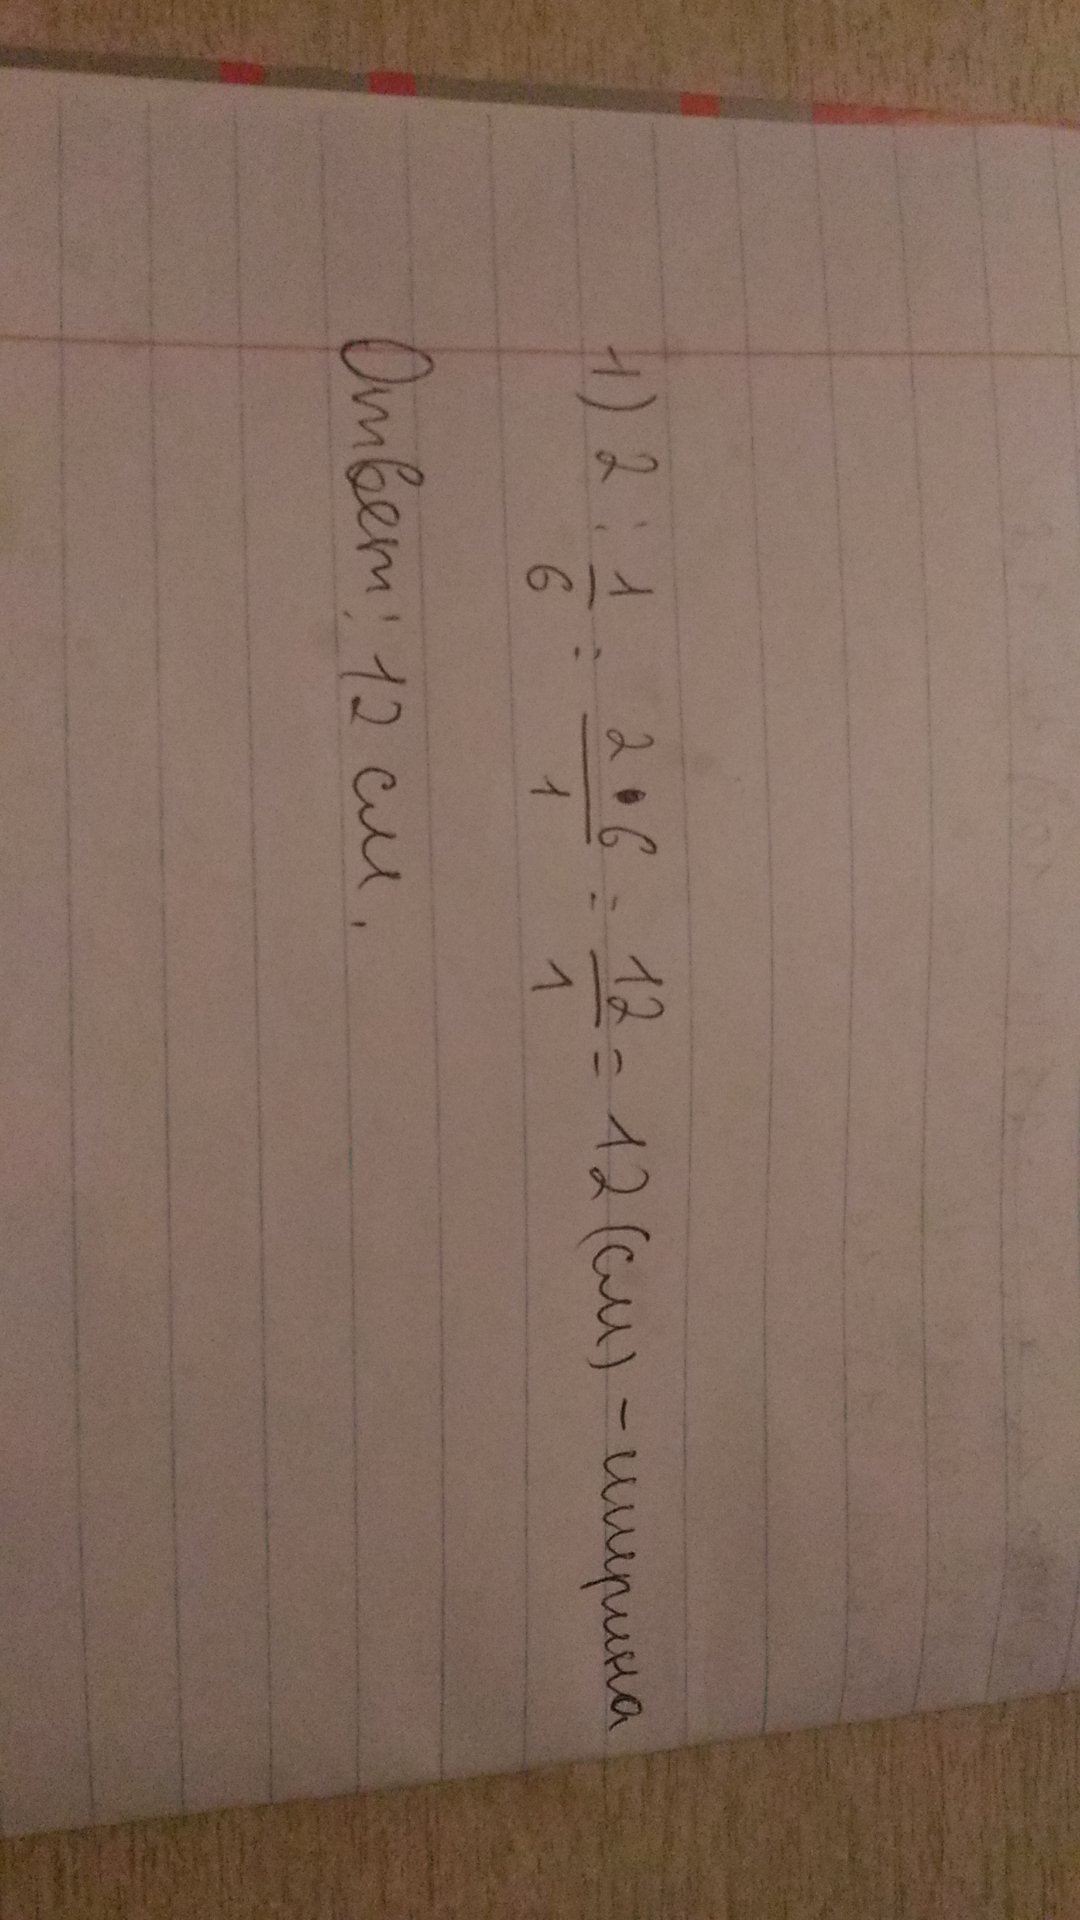 1) 2 : 1/6 = 2•6/1 = 12/1 = 12 (см) - ширина
Ответ: 12 см.